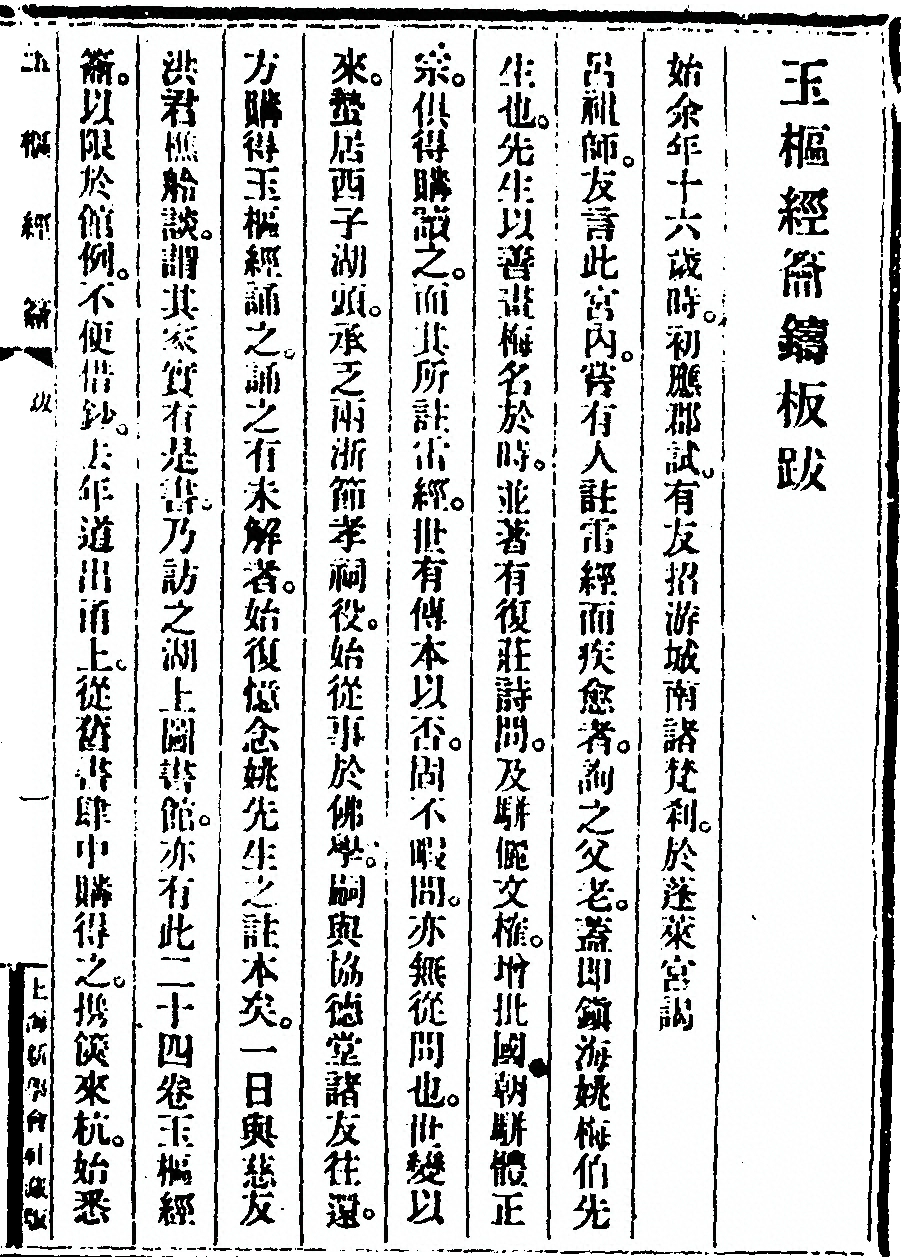 玉樞經籥鑄板跋
始余年十六歲時。初應郡試。有友招游城南諸梵刹。於蓬萊宮謁
呂祖師。友言此宮內。嘗有人註雷經而疾愈者。詢之父老。蓋即鎮海姚梅伯先
生也。先生以善畫梅名於時。並著有復莊詩問。及駢儷文榷。增批國朝駢體正
宗。俱得購讀之。而其所註雷經。世有傳本以否。固不暇問。亦無從問也。世變以
來。蟄居西子湖頭。承乏兩浙節孝祠役。始從事於佛學。嗣與協德堂諸友往還。
方購得玉樞經誦之。誦之有未解者。始復憶念姚先生之註本矣。一日與慈友
洪君樵舲談。謂其家實有是書。乃訪之湖上圖書館。亦有此二十四卷玉樞經
籥。以限於館例。不便借鈔。去年道出甬上。從舊書肆中購得之。携篋來杭。始悉
玉樞經籥
跋
一
上海